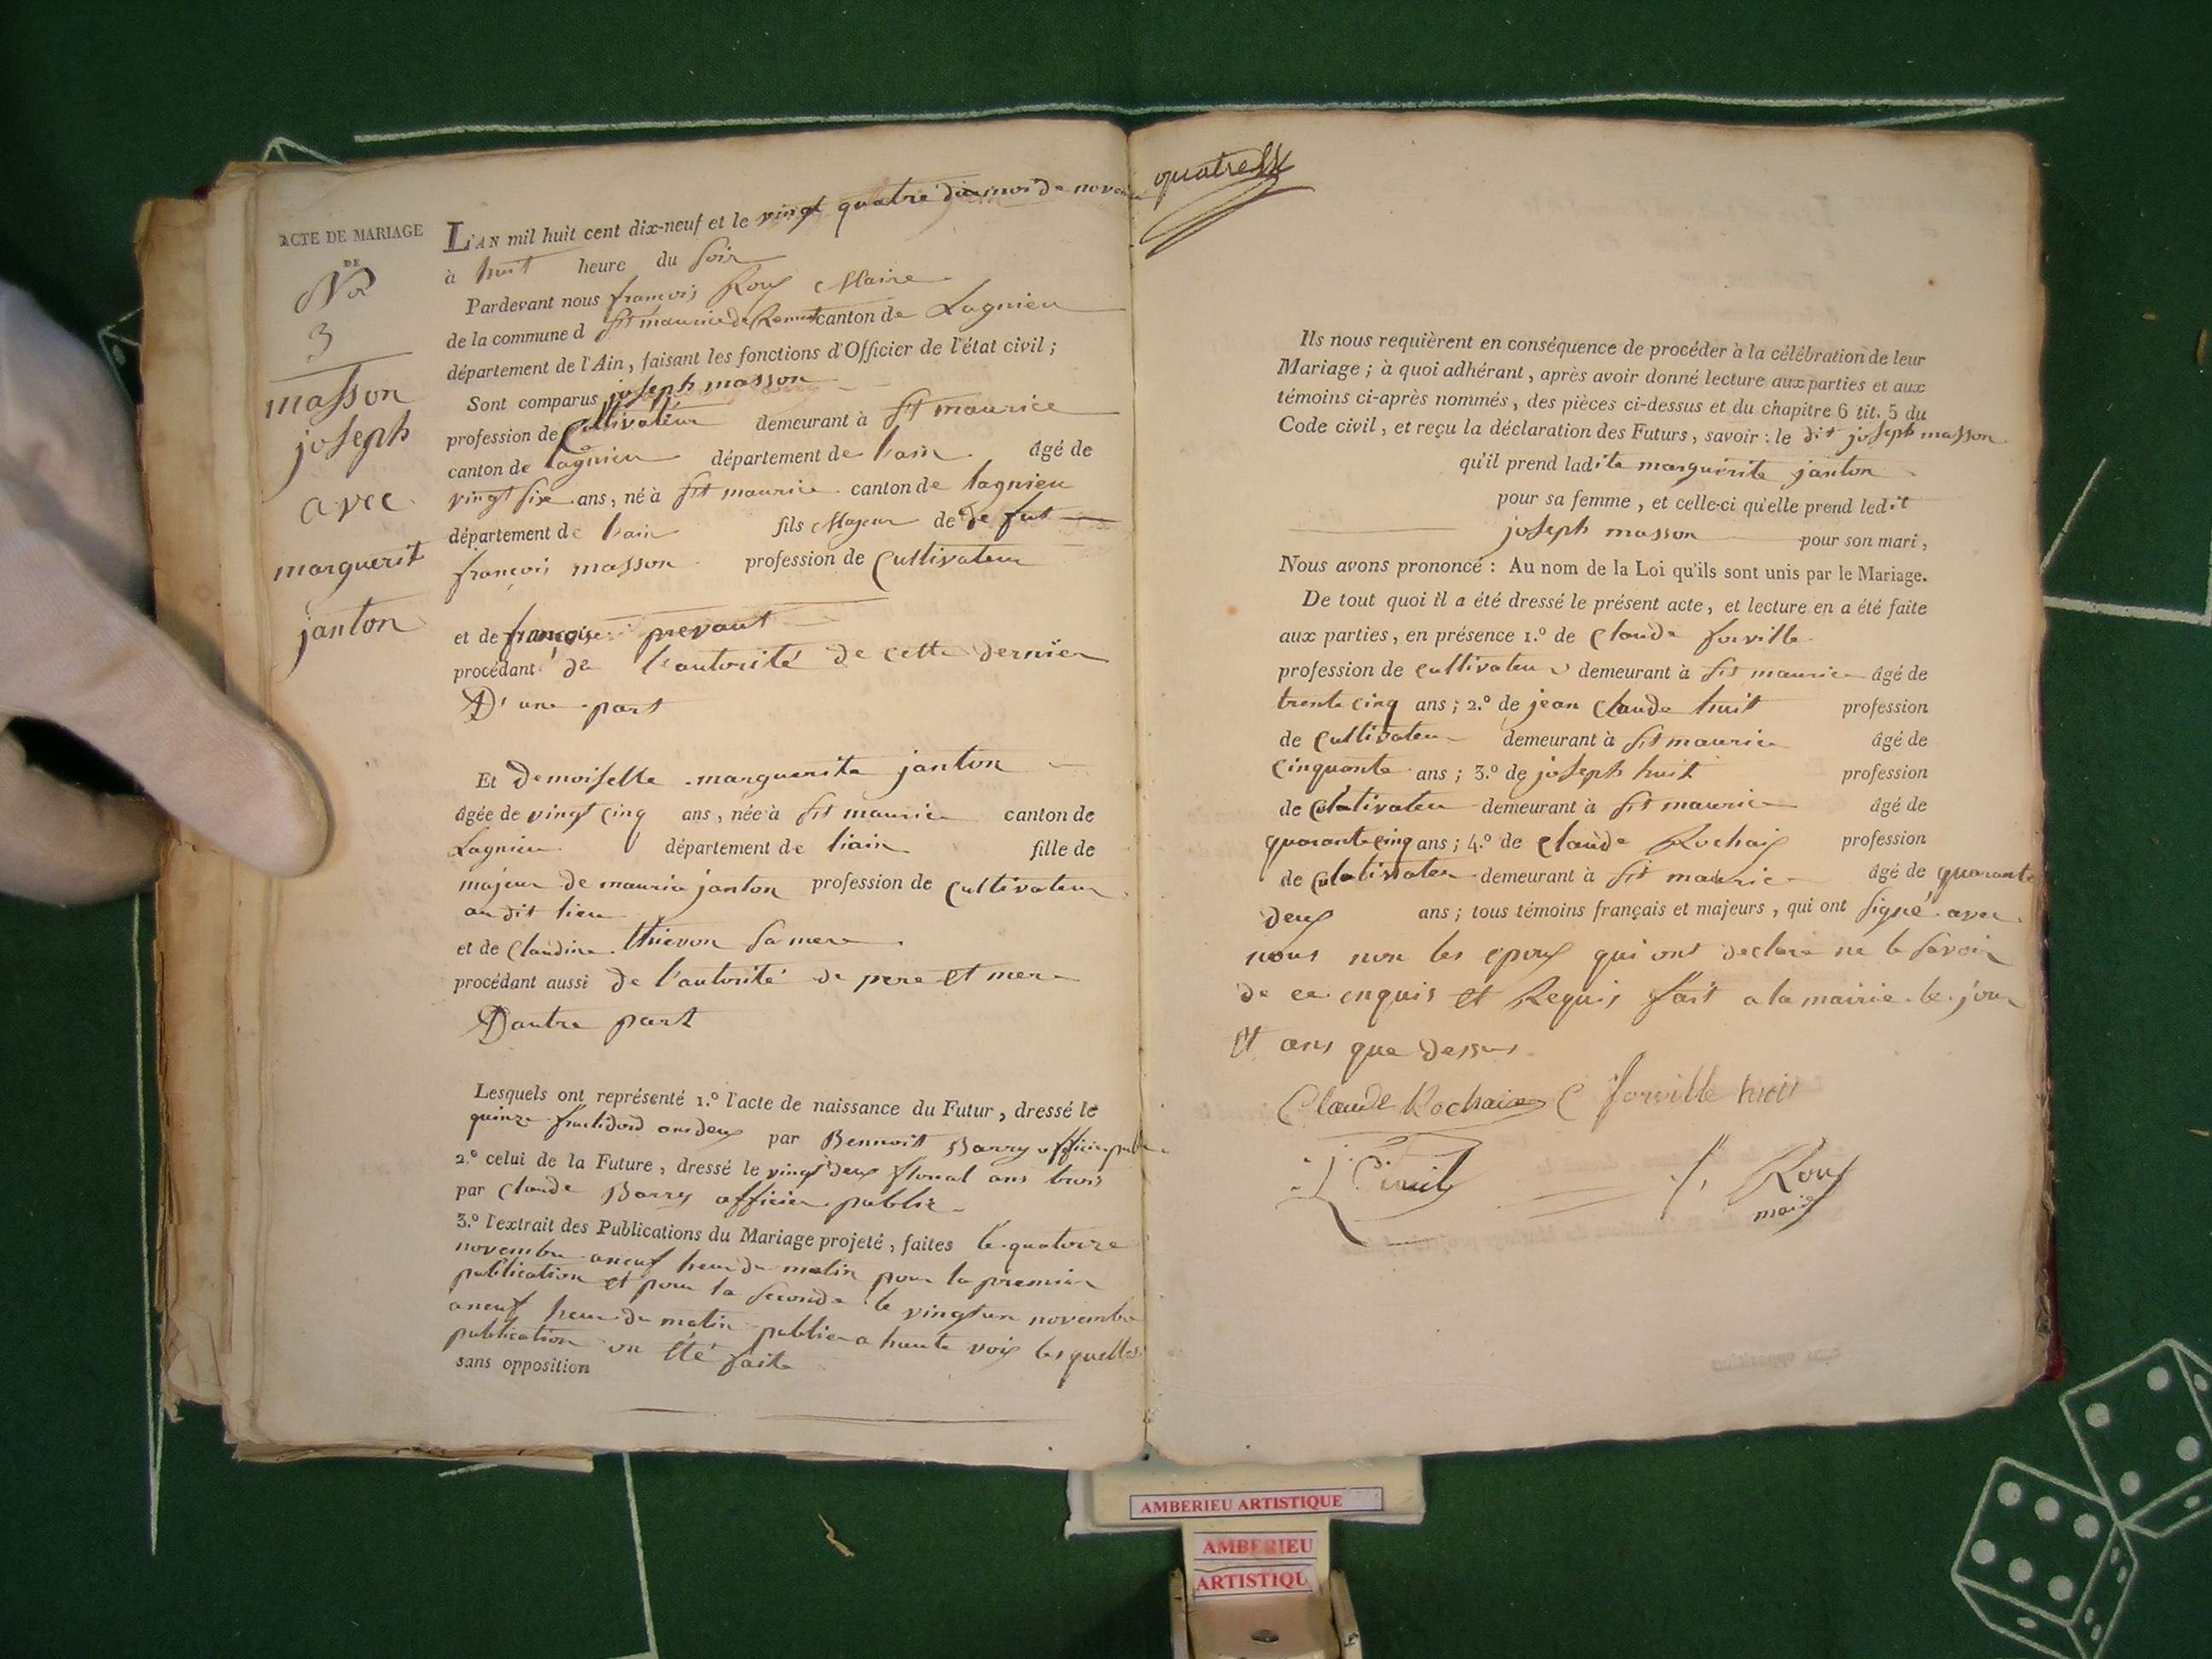 ACTE DE MARIAGE
DE
No
3
masson
joseph
avec
marguerit
janton
L'AN mil huit cent dix-neuf et le vingt quatre du mois de novem
à huit heure du soir
Pardevant nous françois Roux Maire
de la commune d St maurice de Remens canton de Lagnieu
département de l'Ain, faisant les fonctions d'Officier de l'état civil ;
Sont comparus joseph masson
profession de Cultivateur demeurant à St maurice
canton de lagnieu département de l'ain âgé de
vingt six ans, né à St maurice canton de lagnieu
département de l'ain fils Majeur de de fut
françois masson profession de Cultivateur
et de françoise prevant
procédant de l'autorité de cette dernier
D'une part
Et Demoiselle marguerite janton
âgée de vingt cinq ans, née à St maurice canton de
Lagnieu département de l'ain fille de
majeur de mauric janton profession de Cultivateur
au dit lieu
et de Claudine thievon sa mere
procédant aussi de l'autorité de pere et mere
D'autre part
Lesquels ont représenté 1.º l'acte de naissance du Futur, dressé le
quinze fructidord ans deux par Bennoit Barry officier public
2.º celui de la Future, dressé le vingt deux floreal ans trois
par Claude Barry officier public
3.º l'extrait des Publications du Mariage projeté, faites le quatorze
novembre a neuf heur du matin pour la premier
publication et pour la seconde le vingt un novembre
a neuf heur du matin publier a haute voix lesquelles
publication on été faite
sans opposition
quatre
Ils nous requièrent en conséquence de procéder à la célébration de leur
Mariage ; à quoi adhérant, après avoir donné lecture aux parties et aux
témoins ci-après nommés, des pièces ci-dessus et du chapitre 6 tit. 5 du
Code civil, et reçu la déclaration des Futurs, savoir : le dit joseph masson
qu'il prend ladite marguerite janton
pour sa femme, et celle-ci qu'elle prend ledit
joseph masson pour son mari,
Nous avons prononcé : Au nom de la Loi qu'ils sont unis par le Mariage.
De tout quoi il a été dressé le présent acte, et lecture en a été faite
aux parties, en présence 1.º de Claude forville
profession de cultivateur demeurant à St maurice âgé de
trente cinq ans ; 2.º de jean Claude huit profession
de Cultivateur demeurant à St maurice âgé de
Cinquante ans ; 3.º de joseph huit profession
de Cultivateur demeurant à St maurice âgé de
quarante cinq ans ; 4.º de Claude Rochaix profession
de Cultivateur demeurant à St maurice âgé de quarante
deux ans ; tous témoins français et majeurs, qui ont signé avec
nous non les epoux qui ont declare ne le savoir
de ce enquis et Requis fait a la mairie le jour
et ans que dessus
Claude Rochaix C forville huit
f. Roux
maire
AMBERIEU ARTISTIQUE
AMBERIEU
ARTISTIQU